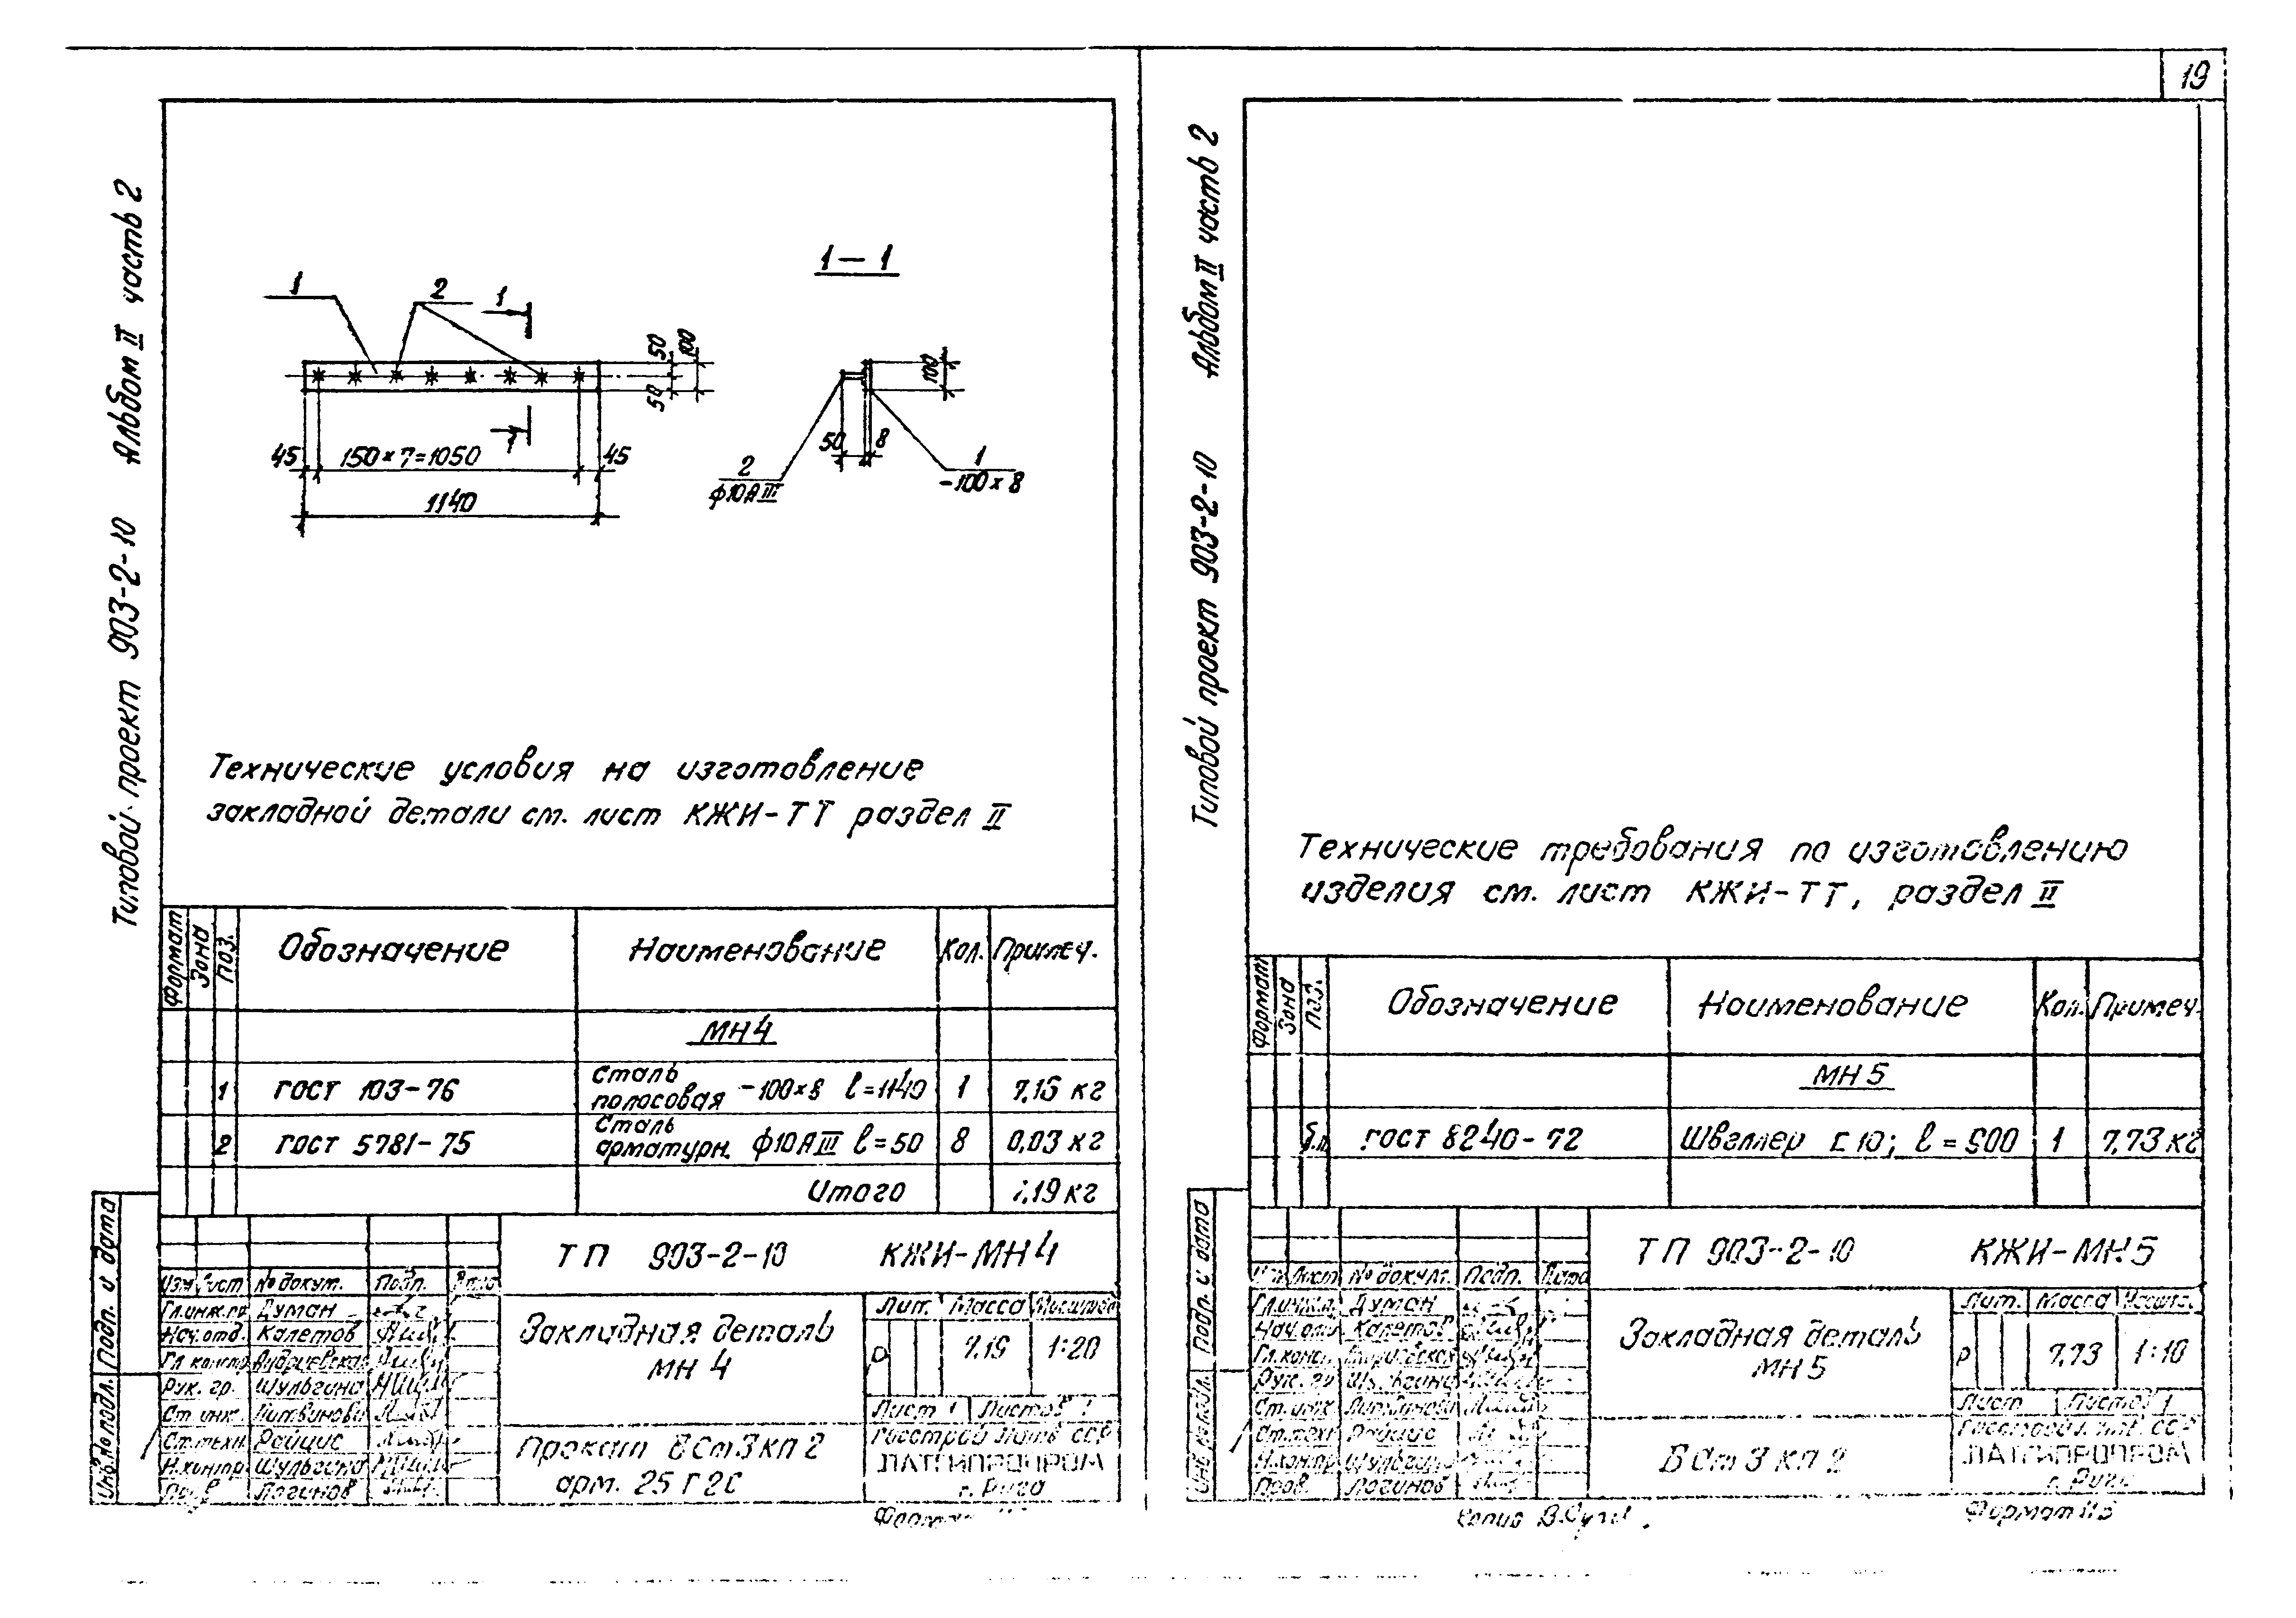 19
Типовой проект 903-2-10 Альбом II часть 2
1
2
1
1
1-1
50
50
100
45
150×7=1050
45
1140
100
50
8
2
ф10АIII
1
-100×8
Технические условия на изготовление
закладной детали см. лист КЖИ-ТТ раздел II
Формат Зона Поз. Обозначение Наименование Кол. Примеч.
МН4
1 ГОСТ 103-76 Сталь полосовая -100×8 ℓ=1140 1 7,15 кг
2 ГОСТ 5781-75 Сталь арматурн. ф10АIII ℓ=50 8 0,03 кг
Итого 7,19 кг
ТП 903-2-10 КЖИ-МН4
Изм Лист № докум. Подп. Дата
Гл.инж.пр Думан
Нач.отд. Калетов
Гл констр
Рук. гр. Шульгина
Ст. инж. Литвинова
Ст.техн Райцис
Н.контр Шульгина
Пров Логинов
Закладная деталь
МН 4
Лит. Масса Масштаб
Р 7,19 1:20
Лист 1 Листов 1
Прокат ВСт3кп2
арм. 25Г2С
Госстрой Латв ССР
ЛАТГИПРОПРОМ
г. Рига
Формат
Подп. и дата
Инв.№ подл.
Типовой проект 903-2-10 Альбом II часть 2
Технические требования по изготовлению
изделия см. лист КЖИ-ТТ, раздел II
Формат Зона Поз. Обозначение Наименование Кол. Примеч.
МН5
б.п. ГОСТ 8240-72 Швеллер [10; ℓ=900 1 7,73 кг
ТП 903-2-10 КЖИ-МН5
Лист № докум. Подп. Дата
Гл.инж.п. Думан
Нач.отд Калетов
Гл.конст.
Рук. гр Шульгина
Ст.инж Литвинова
Ст.техн Райцис
Н.контр Шульгина
Пров. Логинов
Закладная деталь
МН5
Лит. Масса Масшт.
Р 7,73 1:10
Лист Листов 1
ВСт3кп2
Госстрой Латв. ССР
ЛАТГИПРОПРОМ
г. Рига
Подп. и дата
Инв.№ подл.
Копир
Формат 11В